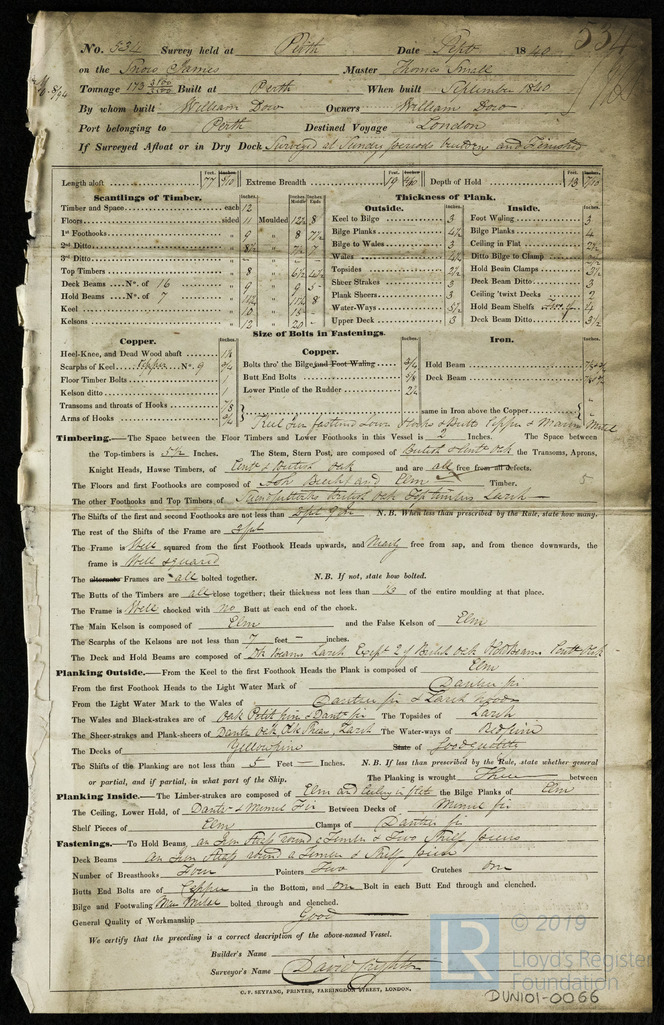 No. 534 Survey held at Perth Date Sept 1840 534
on the Snow James Master Thomas Small
Tonnage 173 Built at Perth When built September 1840
By whom built William Dow Owners William Dow
Port belonging to Perth Destined Voyage London
If Surveyed Afloat or in Dry Dock Surveyed at Sundry periods and Finished
Length aloft Feet. 77 Inches. Extreme Breadth Feet. 19 Depth of Hold Feet. 13
Scantlings of Timber. Thickness of Plank.
Outside. Inside.
Timber and Space each 12
Floors sided 11 Moulded 12½ 8 Keel to Bilge 3 Foot Waling 3
1st Foothooks 9 8 7½ Bilge Planks 4½ Bilge Planks 4
2nd Ditto 8½ 7½ 7 Bilge to Wales 3 Ceiling in Flat 2½
3rd Ditto Wales 4½ Ditto Bilge to Clamp 2½
Top Timbers 8 6½ Topsides 2½ Hold Beam Clamps 3½
Deck Beams No. of 16 9 9 5 Sheer Strakes 3 Deck Beam Ditto 3
Hold Beams No. of 7 11½ 11½ 8 Plank Sheers 3 Ceiling 'twixt Decks 2
Keel 10 15 Water-Ways 3½ Hold Beam Shelfs
Kelsons 12 20 Upper Deck 3 Deck Beam Ditto 3½
Size of Bolts in Fastenings.
Copper. Copper. Iron.
Heel-Knee, and Dead Wood abaft 1⅛
Scarphs of Keel Copper No. 9 Bolts thro' the Bilge and Foot Waling ¾ Hold Beam
Floor Timber Bolts 1 Butt End Bolts ⅝ Deck Beam
Kelson ditto 1 Lower Pintle of the Rudder 2¼
Transoms and throats of Hooks ⅞ same in Iron above the Copper
Arms of Hooks ¾
Timbering.—The Space between the Floor Timbers and Lower Foothooks in this Vessel is 2 Inches. The Space between
the Top-timbers is 5½ Inches. The Stem, Stern Post, are composed of British Oak the Transoms, Aprons,
Knight Heads, Hawse Timbers, of & British Oak and are all free from all defects.
The Floors and first Foothooks are composed of and Elm Timber. 5
The other Foothooks and Top Timbers of British Oak Top timbers Larch
The Shifts of the first and second Foothooks are not less than N.B. When less than prescribed by the Rule, state how many.
The rest of the Shifts of the Frame are
The Frame is Well squared from the first Foothook Heads upwards, and Nearly free from sap, and from thence downwards, the
frame is Well squared
The alternate Frames are all bolted together. N.B. If not, state how bolted.
The Butts of the Timbers are all close together; their thickness not less than ⅓ of the entire moulding at that place.
The Frame is Well chocked with no Butt at each end of the chock.
The Main Kelson is composed of Elm and the False Kelson of Elm
The Scarphs of the Kelsons are not less than 7 feet — inches.
The Deck and Hold Beams are composed of Dk Beams Larch Except 2 of British Oak Hold Beams
Planking Outside.—From the Keel to the first Foothook Heads the Plank is composed of Elm
From the first Foothook Heads to the Light Water Mark of Dantzic fir
From the Light Water Mark to the Wales of Dantzic fir & Larch Wood
The Wales and Black-strakes are of Oak & Dantz fir The Topsides of Larch
The Sheer-strakes and Plank-sheers of Larch The Water-ways of Red pine
The Decks of Yellow pine State of Good quality
The Shifts of the Planking are not less than 5 Feet — Inches. N.B. If less than prescribed by the Rule, state whether general
or partial, and if partial, in what part of the Ship. The Planking is wrought Three between
Planking Inside.—The Limber-strakes are composed of Elm and Ceiling in flatt the Bilge Planks of Elm
The Ceiling, Lower Hold, of Dantz & Memel Fir Between Decks of Memel fir
Shelf Pieces of Elm Clamps of Dantzic fir
Fastenings.—To Hold Beams, an Iron Strap round a Timber & Two Shelf pieces
Deck Beams an Iron Strap round a Timber & Shelf piece
Number of Breasthooks Four Pointers Two Crutches One
Butts End Bolts are of Copper in the Bottom, and one Bolt in each Butt End through and clenched.
Bilge and Footwaling bolted through and clenched.
General Quality of Workmanship Good
We certify that the preceding is a correct description of the above-named Vessel.
Builder's Name
Surveyor's Name David
C. F. SEYFANG, PRINTER, FARRINGDON STREET, LONDON.
LR © 2019
Lloyd's Register
Foundation
DUN101-0066